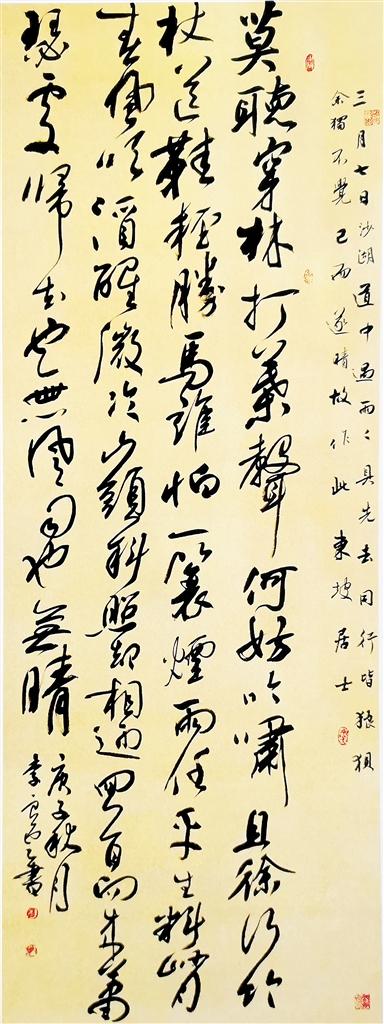 三月七日沙湖道中遇雨々具先去同行皆狼狽
余獨不覺已而遂晴故作此東坡居士
莫聽穿林打葉聲何妨吟嘯且徐行竹
杖芒鞋輕勝馬誰怕一蓑煙雨任平生料峭
春風吹酒醒微冷山頭斜照却相迎回首向來蕭
瑟處歸去也無風雨也無晴
庚子秋月
李書